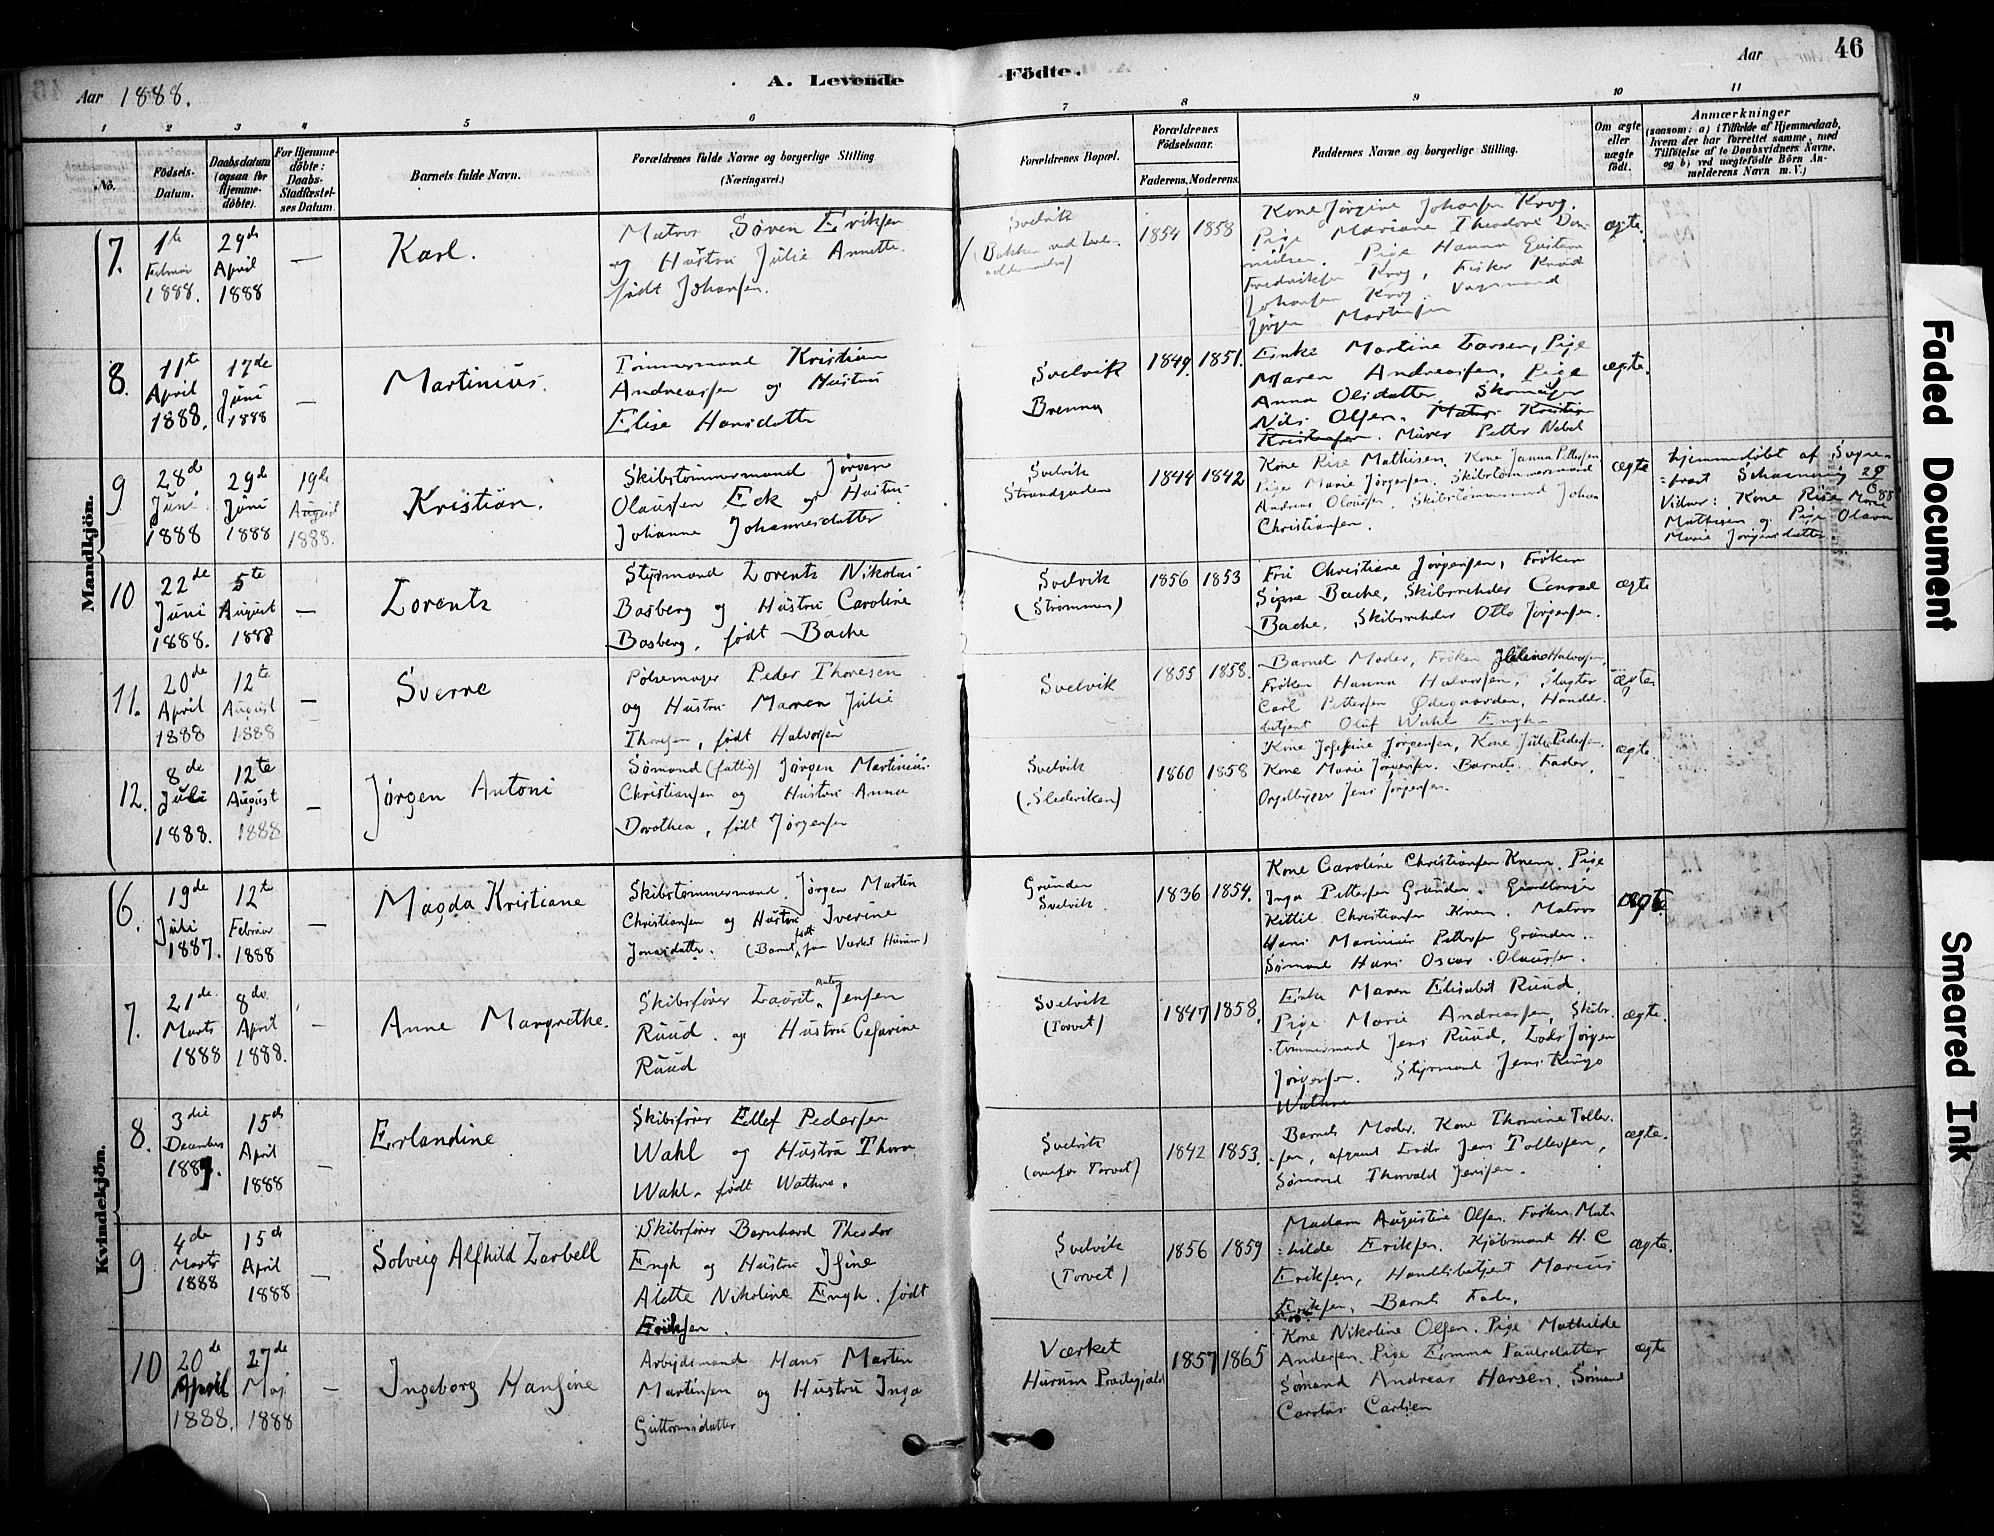 Aar 1888.
A. Levende Födte.
Aar
46
1
2
3
4
5
6
7
8
9
10
11
No.
Födsels-Datum.
Daabsdatum (ogsaa for Hjemme-döbte).
For Hjemme-döbte: Daabs-Stadfæstel-ses Datum.
Barnets fulde Navn.
Forældrenes fulde Navne og borgerlige Stilling
(Næringsvei.)
Forældrenes Bopæl.
Forældrenes Födselsaar.
Faderens.
Moderens.
Faddernes Navne og borgerlige Stilling.
Om ægte eller uægte födt.
Anmærkninger
(saasom: a) i Tilfælde af Hjemmedaab, hvem der har forrettet samme, med Tilföielse af to Daabsvidners Navne, og b) ved uægtefödte Börn Anmelderens Navn m. V.)
Mandkjön.
7.
1ste Februar 1888.
29de April 1888
—
Karl.
Matros Søren Eriksen
og Hustru Julie Annette
født Johansen.
Svelvik
(Bakken ved
1854
1858
Kone Jørgine Johansen Krog.
Pige Mariane Theodora Dan-
nielsen. Pige Hanna Gustava
Fredriksen Krog, Fisker Knud
Johansen Krog. Vognmand
Jørgen Martinsen
ægte.
8.
11te April 1888.
17de Juni 1888
—
Martinius.
Tømmermand Kristian
Andreassen og Hustru
Elise Hansdatter
Svelvik
Brenna
1849.
1851.
Enke Martine Larsen, Pige
Maren Andreassen, Pige
Anna Olsdatter, Skomager
Nils Olsen. Matros Kristian
Kristiansen. Murer Petter Nebel
ægte.
9
28de Juni 1888
29de Juni 1888
19de August 1888.
Kristian.
Skibstømmermand Jørgen
Olaussen Eek og Hustru
Johanne Johannesdatter
Svelvik
Strandgaden
1844
1842
Kone Rise Mathisen. Kone Janna Pettersen
Pige Marie Jørgensen. Skibstømmermand
Andreas Olaussen, Skibstømmermand Johan
Christiansen.
ægte
Hjemmedøbt af Sogne-
prest Schanning 29/6 88
Vidner: Kone Rise Marie
Mathisen og Pige Olava
Marie Jørgensdatter
10
22de Juni 1888.
5te August 1888
—
Lorentz
Styrmand Lorentz Nikolai
Basberg og Hustru Caroline
Basberg, født Bache
Svelvik
(Strømmen)
1856
1853
Fru Christiane Jørgensen, Frøken
Signe Bache, Skibsrehder Conrad
Bache, Skibsrehder Otto Jørgensen.
ægte
11.
20de April 1888
12te August 1888
—
Sverre
Pølsemager Peder Thoresen
og Hustru Maren Julie
Thoresen, født Halvorsen
Svelvik
1855
1858.
Barnets Moder, Frøken Halvorsen,
Frøken Hanna Halvorsen, Slagter
Carl Pettersen Ødegaarden, Handels-
betjent Oluf Wahl Engh
ægte
12.
8de Juli 1888.
12te August 1888
—
Jørgen Antoni
Sømand (fattig) Jørgen Martinius
Christiansen og Hustru Anna
Dorothea, født Jørgensen
Svelvik
(Sledeviken)
1860
1858
Kone Josefine Jørgensen, Kone Julie Pedersen,
Kone Marie Jørgensen. Barnets Fader,
Orgelbygger Jens Jørgensen.
ægte.
Kvindekjön.
6.
19de Juli 1887.
12te Februar 1888
—
Magda Kristiane
Skibstømmermand Jørgen Martin
Christiansen og Hustru Iverine
Jonasdatter. (Barnet født paa Værket Hurum)
Grunden
Svelvik
1836
1854.
Kone Caroline Christiansen Knem. Pige
Inga Pettersen Grunden.
Kittil Christiansen Knem. Matros
Hans Marinius Pettersen Grunden.
Sømand Hans Oscar Olaussen.
ægte.
7.
21de Marts 1888
8de April 1888.
—
Anne Margrethe.
Skibsfører Laurits Anton Jensen
Ruud. og Hustru Cesarine
Ruud
Svelvik
(Torvet)
1847
1858.
Enke Maren Elisabet Ruud,
Pige Marie Andreassen, Skibs-
tømmermand Jens Ruud, Lods Jørgen
Jørgensen. Styrmand Jens Ringo
Wathne
ægte.
8.
3die December 1887.
15de April 1888
—
Erlandine
Skibsfører Ellef Pedersen
Wahl og Hustru Thora
Wahl. født Wathne.
Svelvik
(ovenfor Torvet)
1842
1853.
Barnets Moder. Kone Thomine Tollef-
sen, Lods Jens Tollefsen,
Sømand Thorvald Jensen.
ægte.
9
4de Marts 1888
15de April 1888
—
Solveig Alfhild Zarbell
Skibsfører Bernhard Theodor
Engh og Hustru Isine
Alette Nikoline Engh. født
Eriksen.
Svelvik
(Torvet)
1856
1859
Madam Augustine Olsen. Frøken Mat-
hilde Eriksen. Kjøbmand H. C
Eriksen, Handelsbetjent Marius
Eriksen, Barnets Fader.
ægte.
10
20de April 1888.
27de Maj 1888
—
Ingeborg Hansine
Arbejdsmand Hans Martin
Martinsen og Hustru Inga
Guttormsdatter
Værket
Hurum Præstegjæld
1857
1865
Kone Nikoline Olsen. Pige Mathilde
Andersen. Pige Emma Paulsdatter
Sømand Andreas Hansen. Sømand
Carolus Carlsen
ægte
Faded Document
Smeared Ink